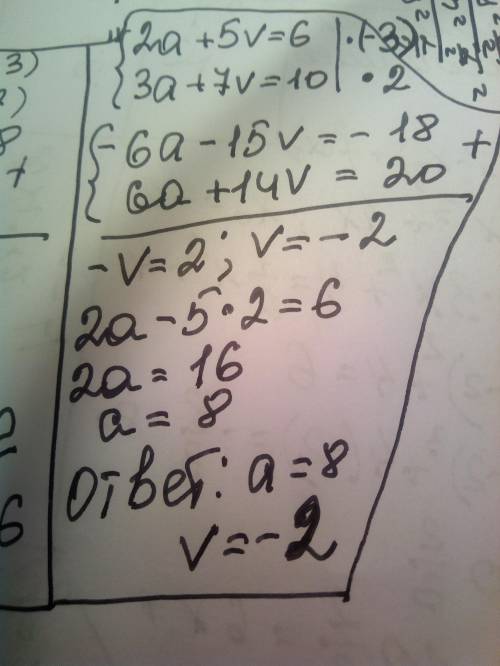 {2a + 5v = 6 | · (-3)
3a + 7v = 10 | · 2
{-6a - 15v = - 18 +
6a + 14v = 20
-v = 2; v = - 2
2a - 5 · 2 = 6
2a = 16
a = 8
Ответ: a = 8
v = - 2